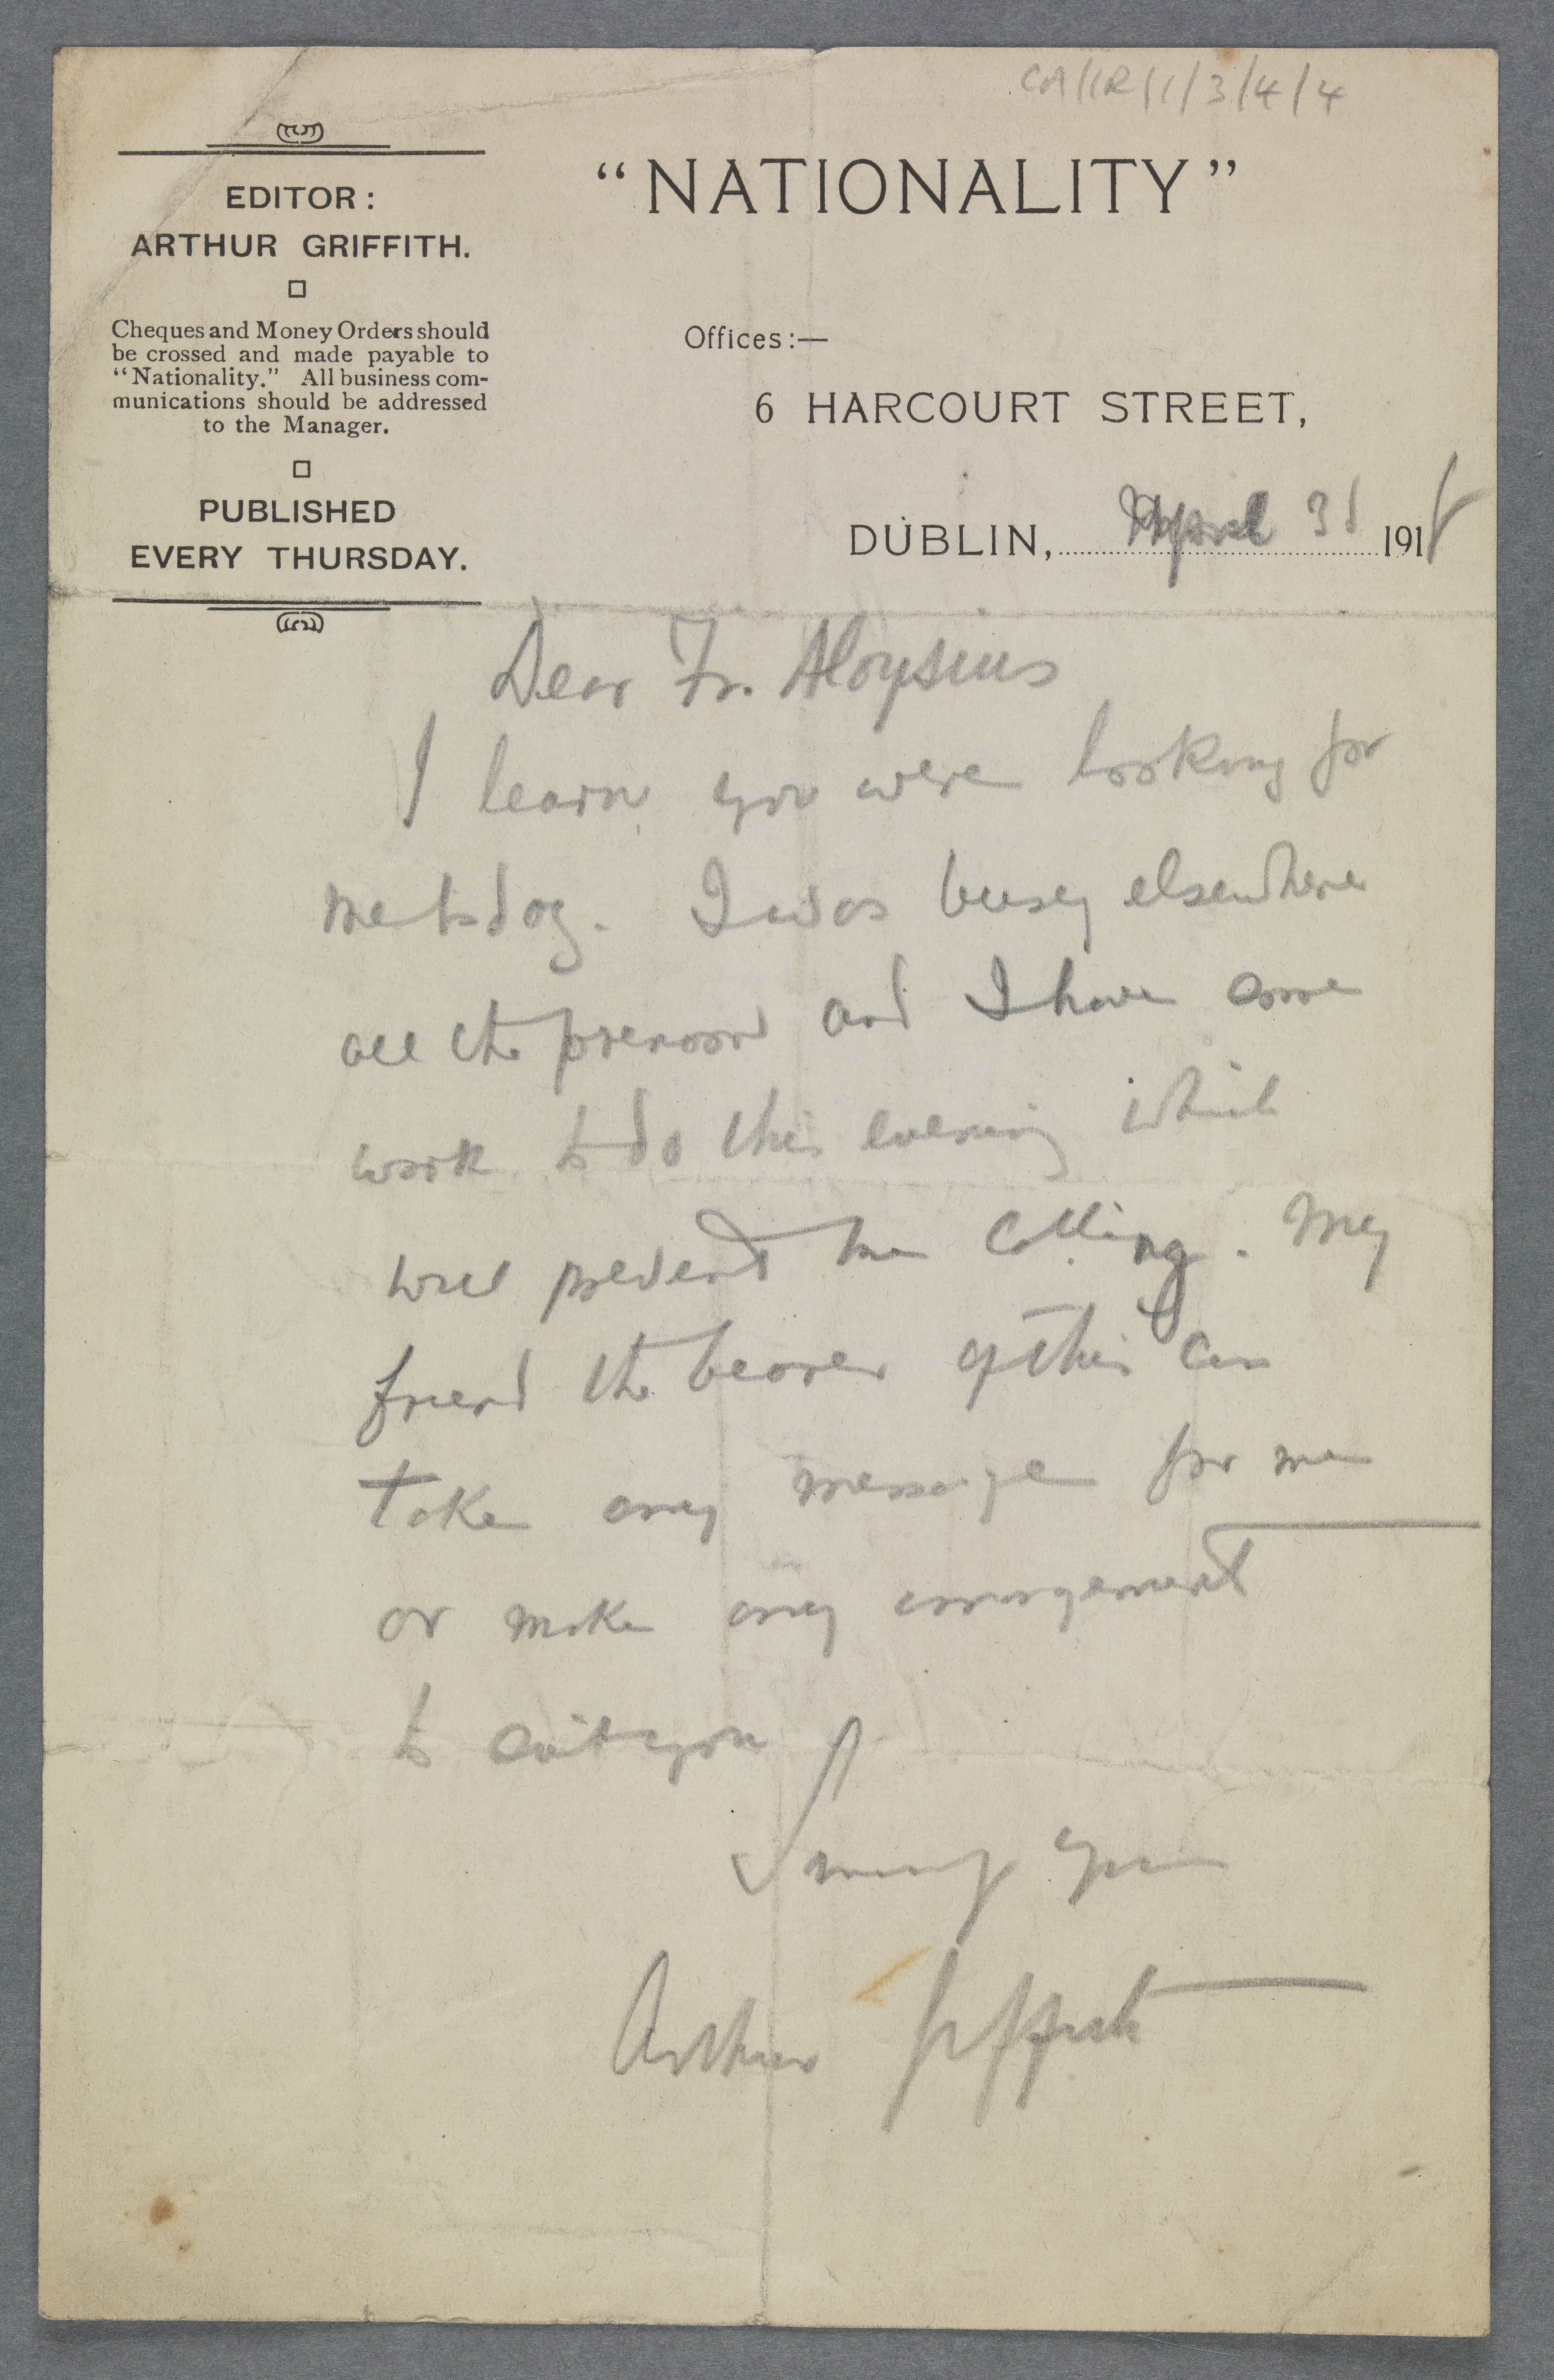 CA/IR/1/3/4/4
EDITOR:
ARTHUR GRIFFITH.
Cheques and Money Orders should
be crossed and made payable to
“Nationality.” All business com-
munications should be addressed
to the Manager.
PUBLISHED
EVERY THURSDAY.
“NATIONALITY”
Offices:—
6 HARCOURT STREET,
DUBLIN, April 31 1918
Dear Fr. Aloysius
I learn you were looking for
me today. I was busy elsewhere
all the forenoon and I have some
work to do this evening which
will prevent me calling. My
friend the bearer of this can
take any message for me
or make any arrangement
to suit you
Sincerely yours
Arthur Griffith